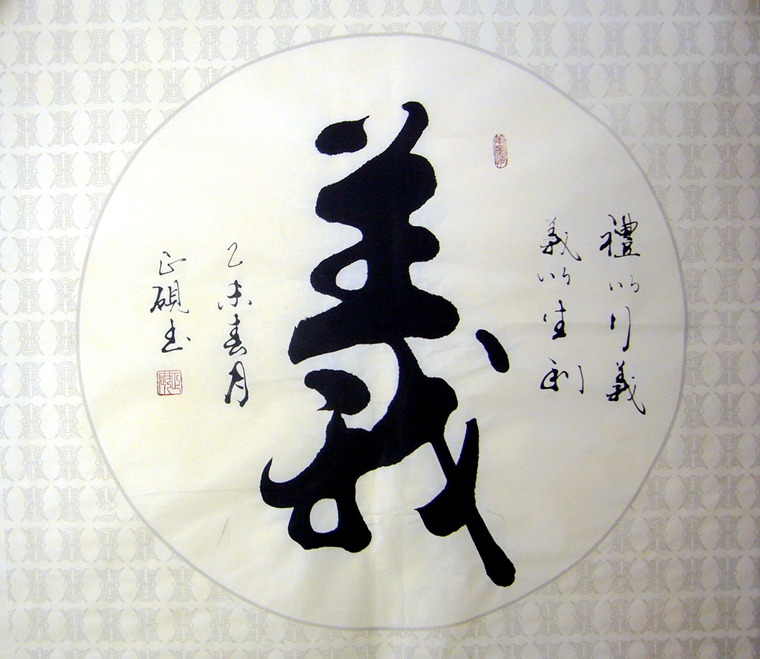 禮以行義
義以生利
義
乙未春月
正硯书